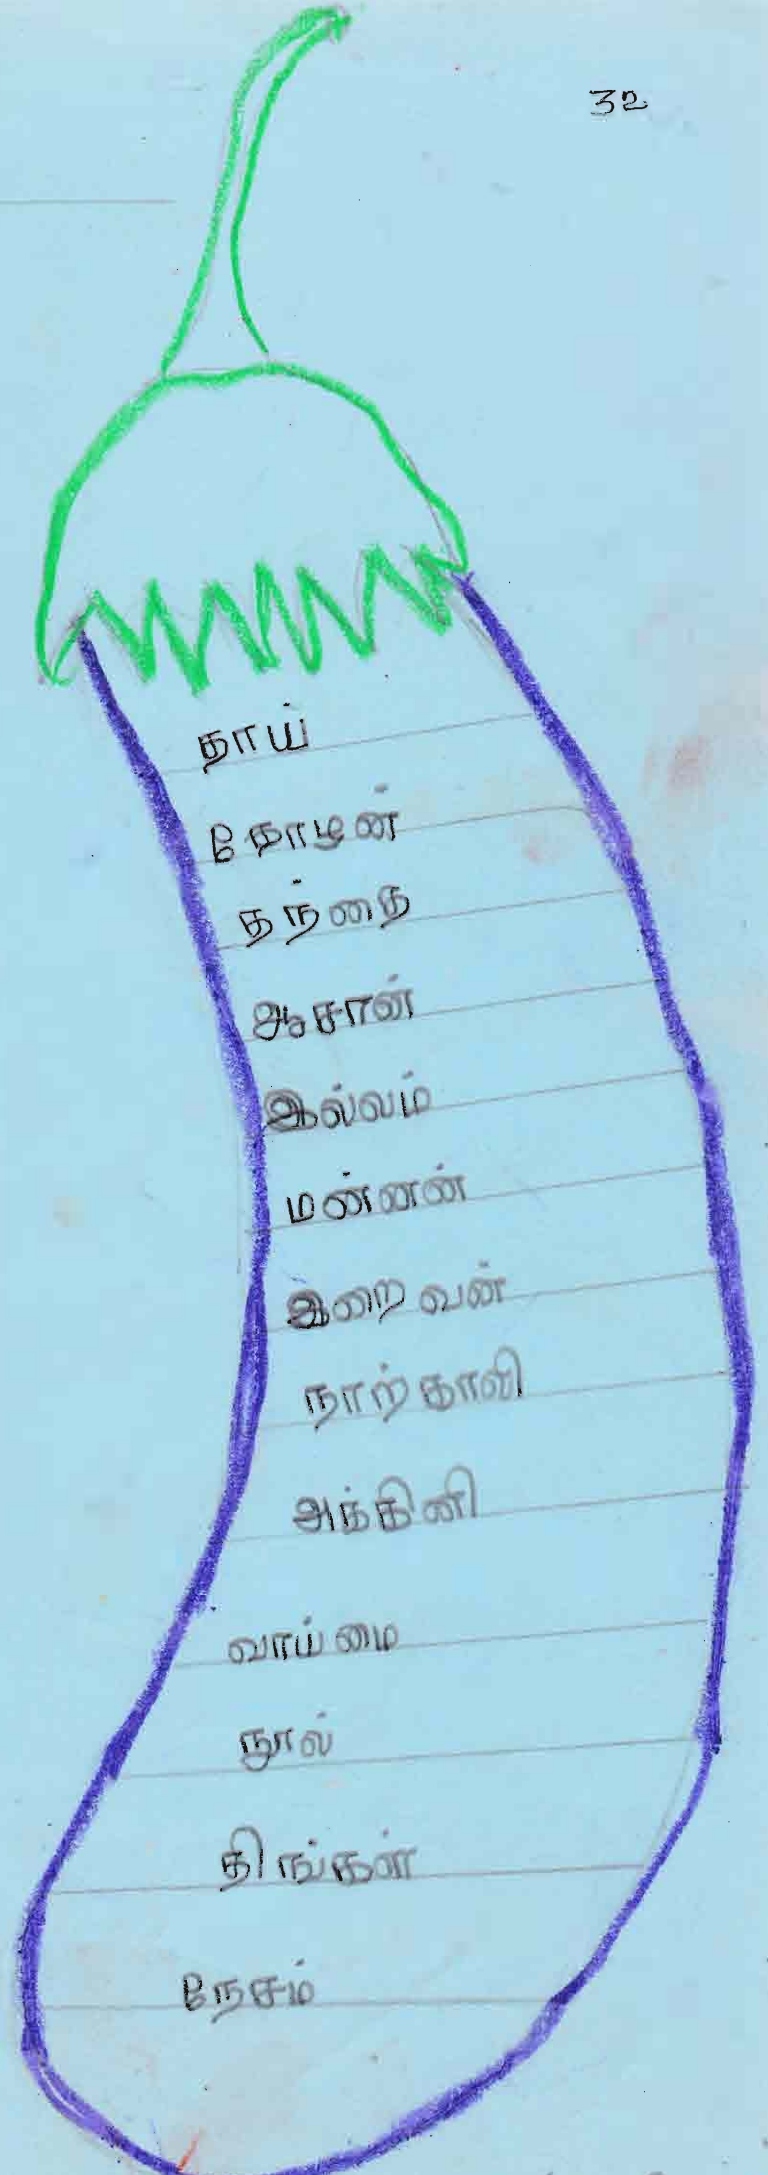 32
தாய்
தோழன்
தந்தை
ஆசான்
இல்லம்
மன்னன்
இறைவன்
நாற்காலி
அக்கினி
வாய்மை
நூல்
திங்கள்
நேசம்